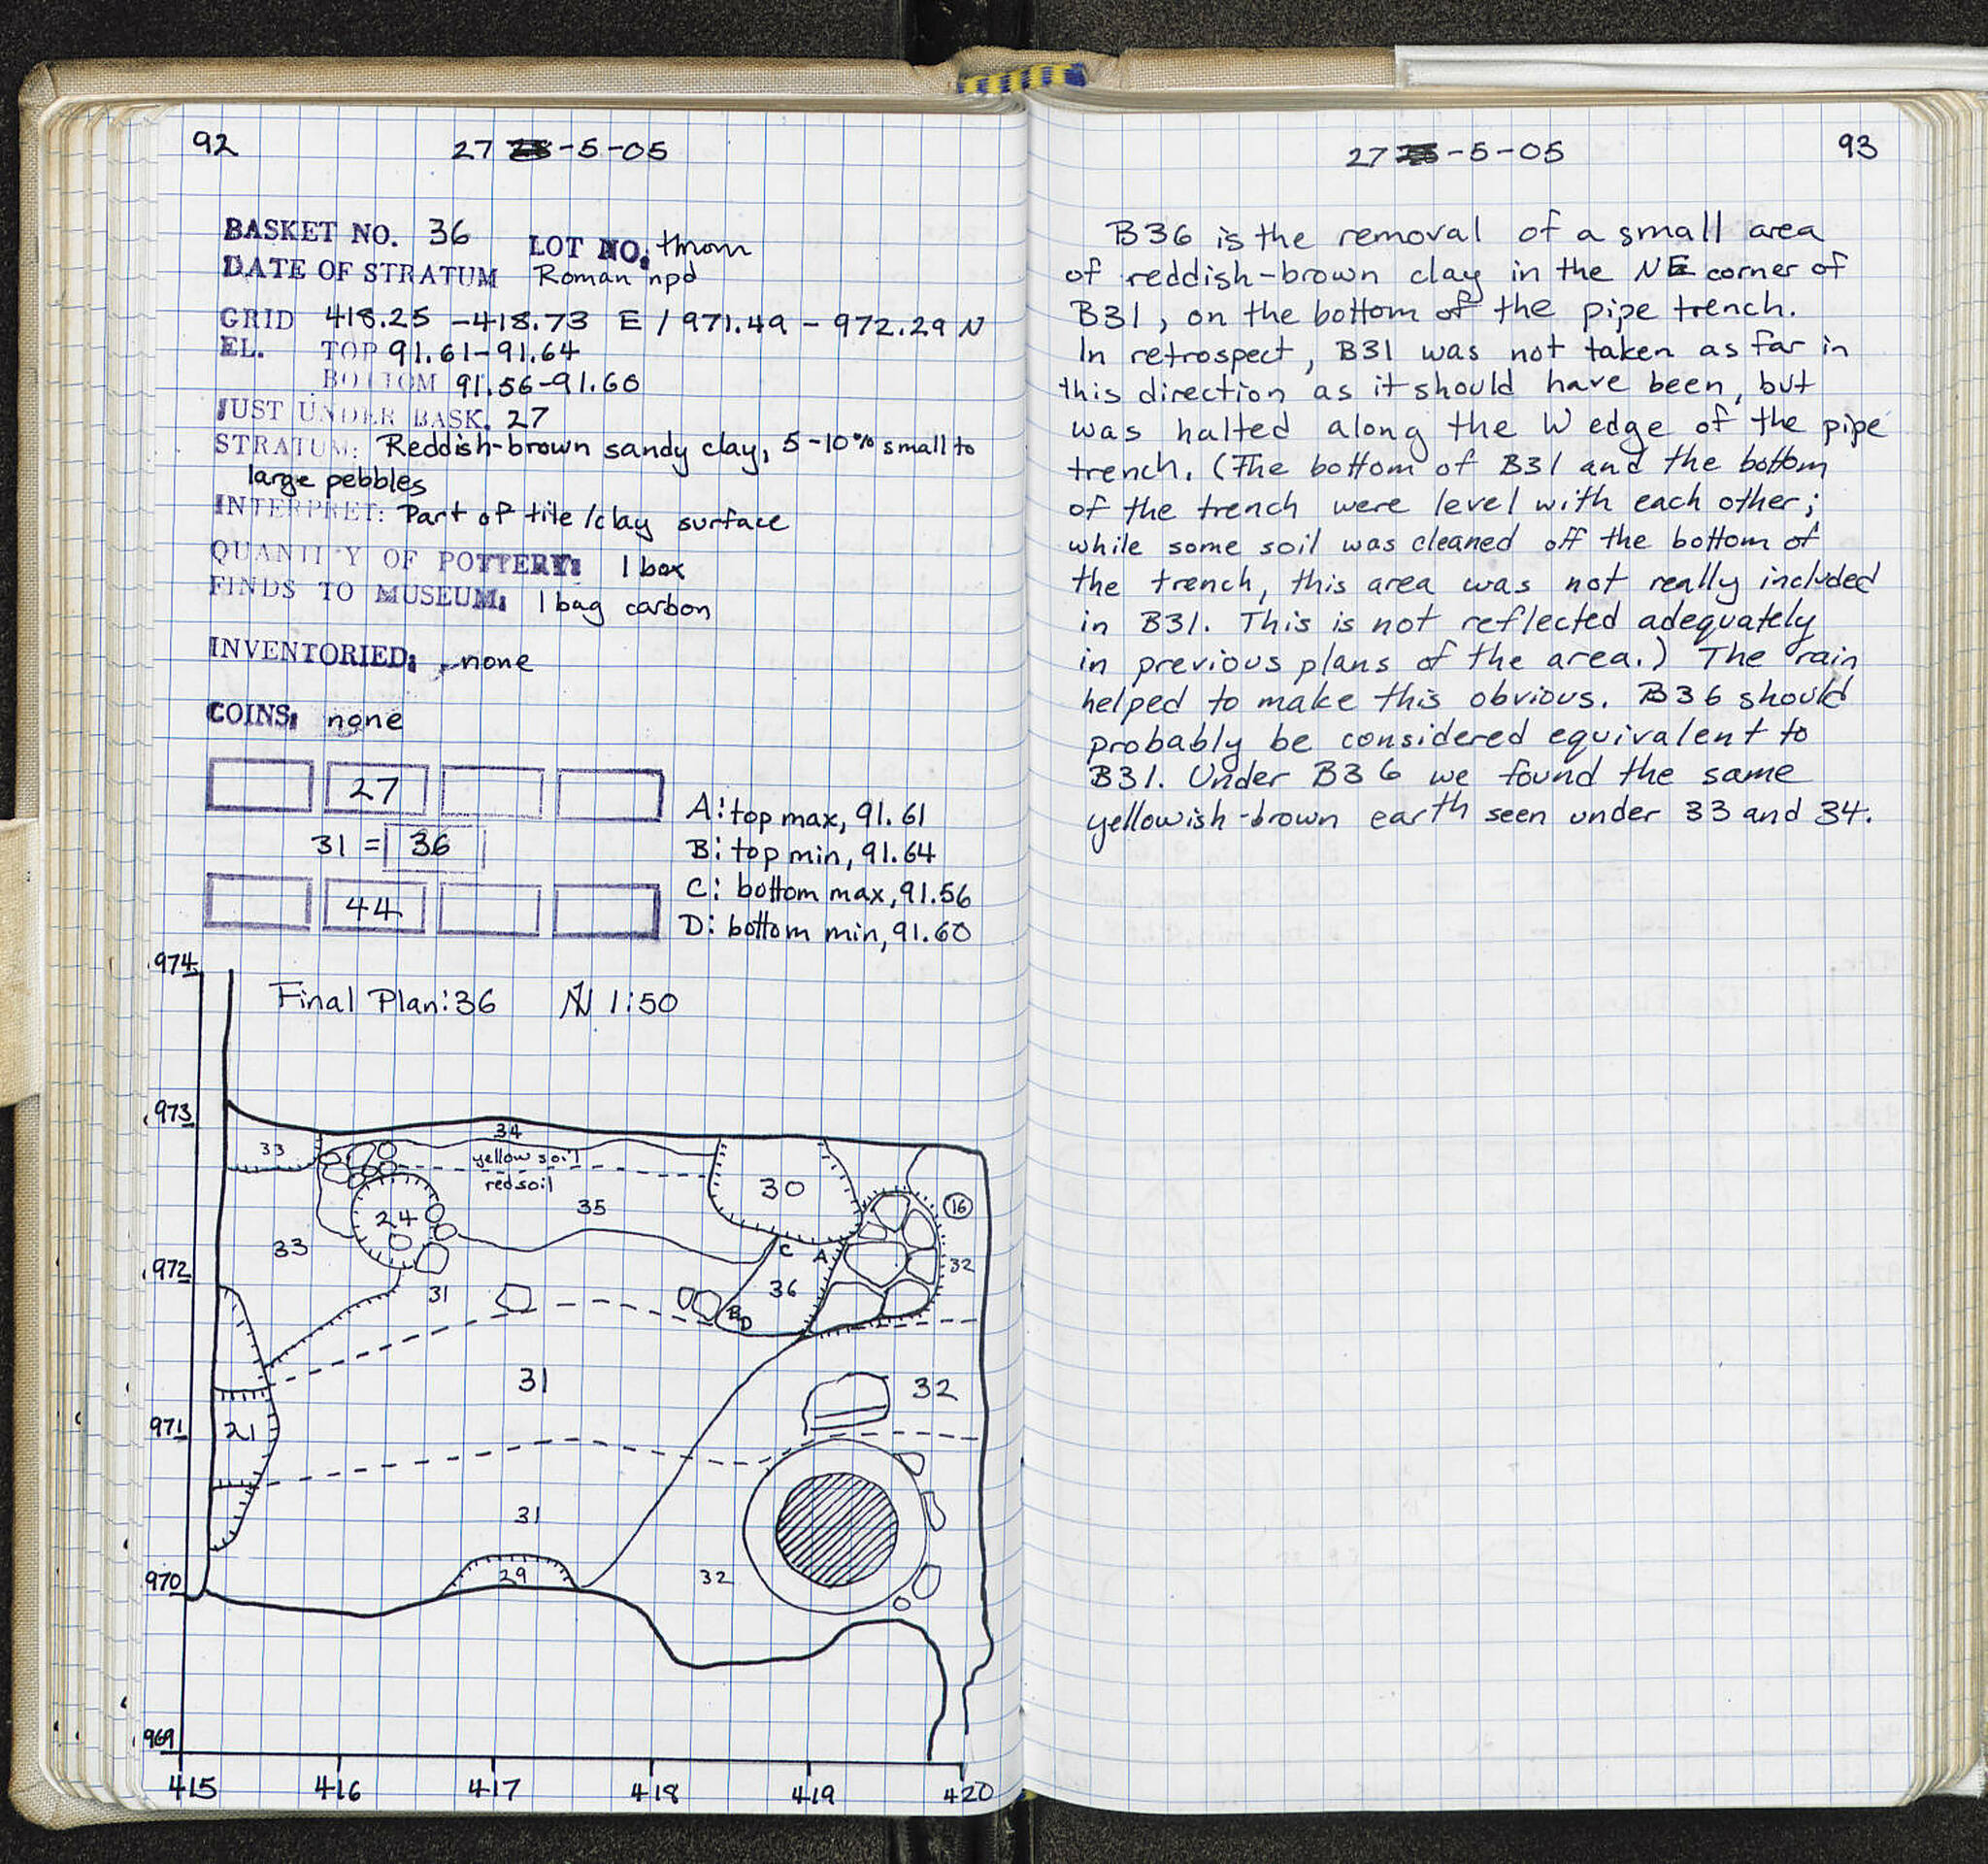 92
27 -5-05
BASKET NO. 36 LOT NO: thrown
DATE OF STRATUM Roman npd
GRID 418.25 -418.73 E / 971.49 - 972.29 N
EL. TOP 91.61-91.64
BOTTOM 91.56-91.60
JUST UNDER BASK. 27
STRATUM: Reddish-brown sandy clay, 5-10% small to
large pebbles
INTERPRET: Part of tile/clay surface
QUANTITY OF POTTERY: 1 box
FINDS TO MUSEUM: 1 bag carbon
INVENTORIED: none
COINS: none
27
31 = 36
44
A: top max, 91.61
B: top min, 91.64
C: bottom max, 91.56
D: bottom min, 91.60
974
Final Plan: 36 N 1:50
973
34
33
yellow soil
red soil
30
35
24
16
33
C A
972
32
31
36
B
D
31
32
971
21
31
29
970
32
969
415 416 417 418 419 420
27 -5-05
93
B36 is the removal of a small area
of reddish-brown clay in the NE corner of
B31, on the bottom of the pipe trench.
In retrospect, B31 was not taken as far in
this direction as it should have been, but
was halted along the W edge of the pipe
trench. (The bottom of B31 and the bottom
of the trench were level with each other;
while some soil was cleaned off the bottom of
the trench, this area was not really included
in B31. This is not reflected adequately
in previous plans of the area.) The rain
helped to make this obvious. B36 should
probably be considered equivalent to
B31. Under B36 we found the same
yellowish-brown earth seen under 33 and 34.